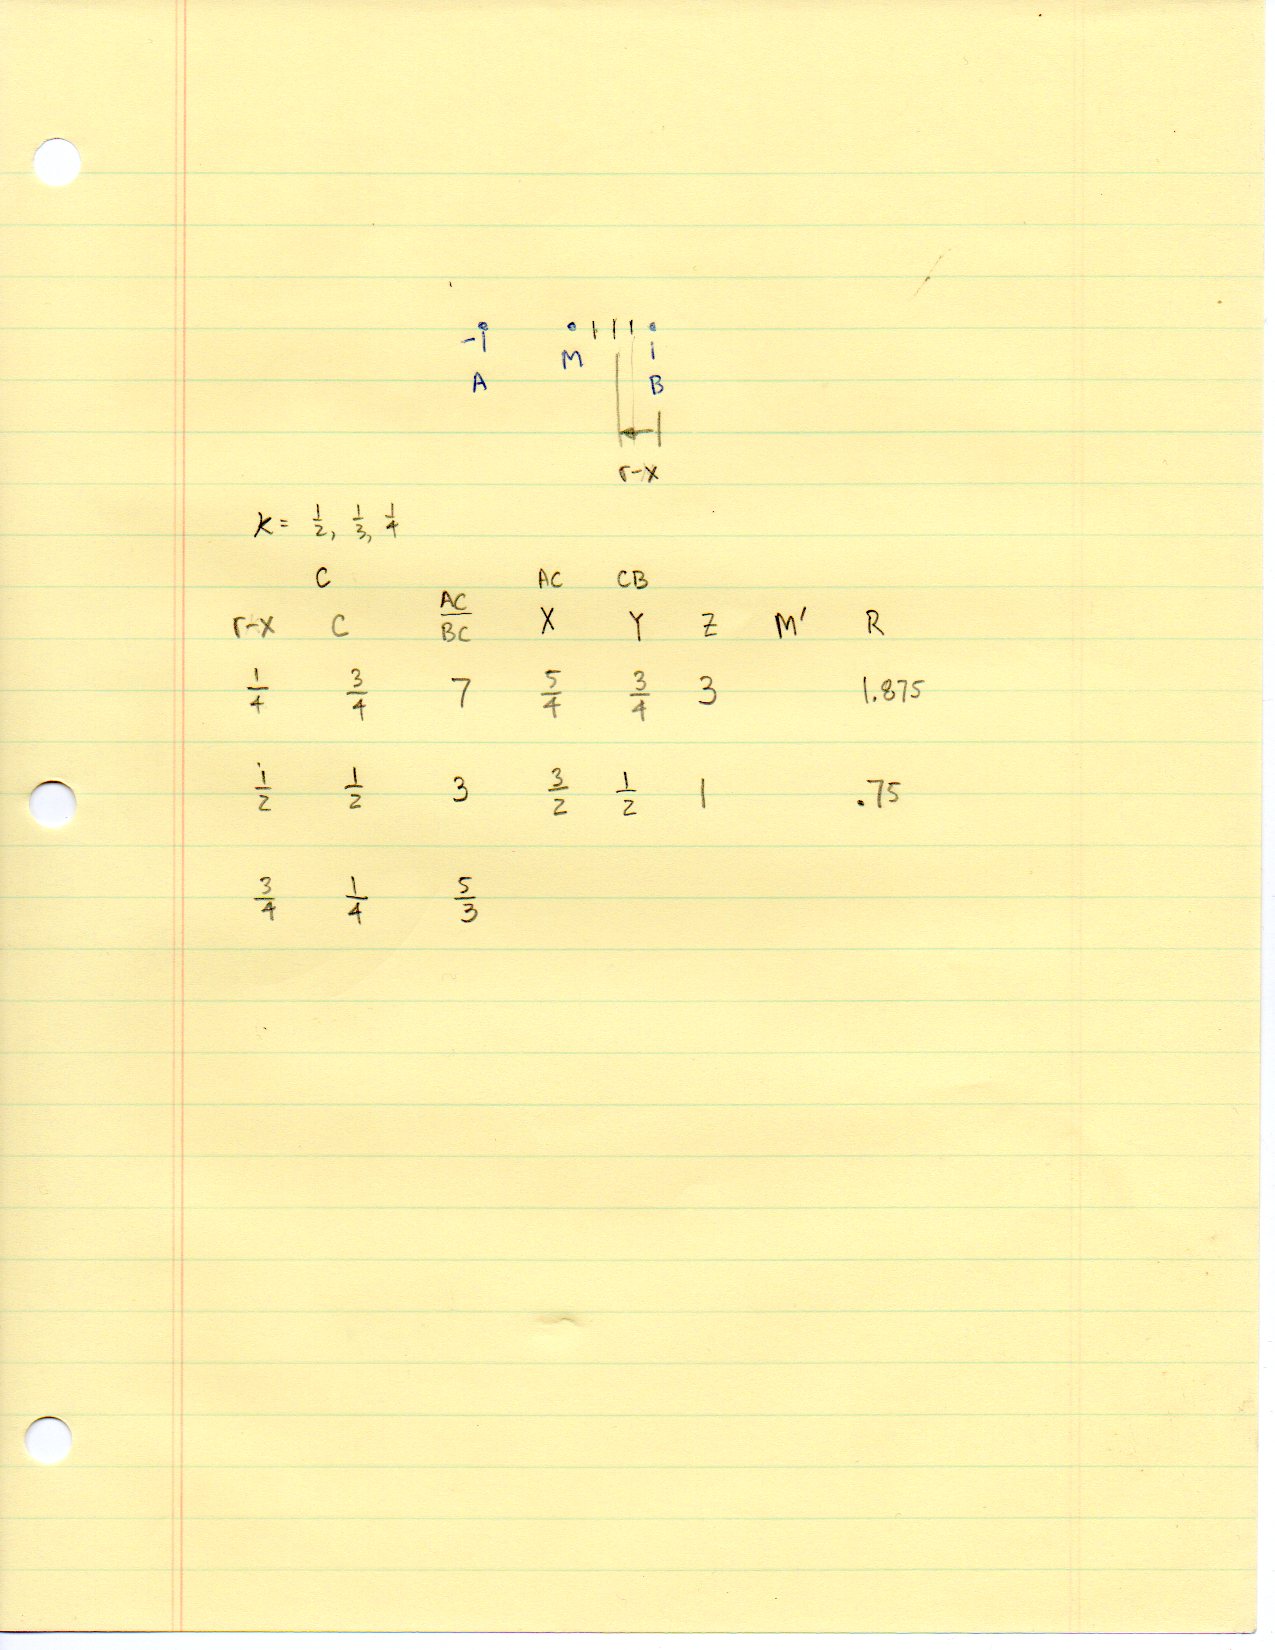 -1 M 1
A B
r-x
K = 1/2, 1/3, 1/4
C AC CB
r-x C AC/BC X Y Z M' R
1/4 3/4 7 5/4 3/4 3 1.875
1/2 1/2 3 3/2 1/2 1 .75
3/4 1/4 5/3